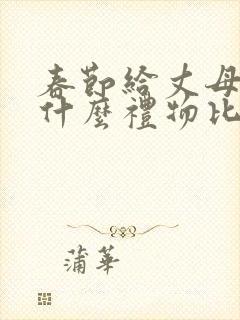 春節給丈母
什麼禮物比
蒲華